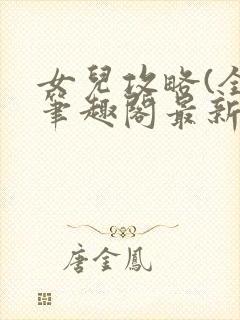 女兒攻略(全
筆趣閣最新
唐金鳳